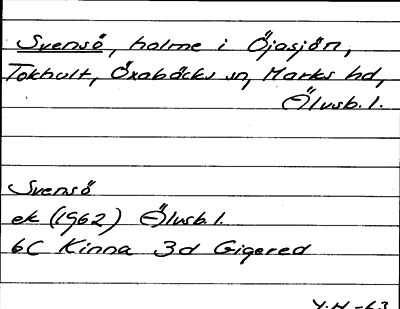 Svensö, holme i Öjasjön,
Tokhult, Öxabäcks sn, Marks hd,
Älvsb. l.
Svensö
ek (1962) Älvsb. l.
6C Kinna 3d Gigered